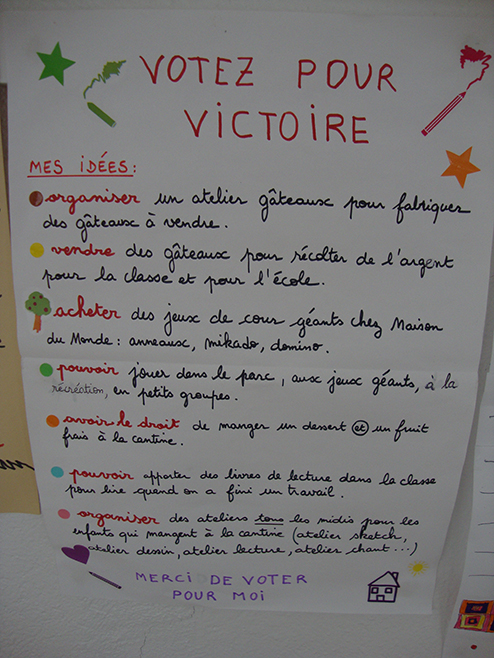 VOTEZ POUR
VICTOIRE
MES IDÉES :
organiser un atelier gâteaux pour fabriquer
des gâteaux à vendre.
vendre des gâteaux pour récolter de l'argent
pour la classe et pour l'école.
acheter des jeux de cour géants chez Maison
du Monde : anneaux, mikado, domino.
pouvoir jouer dans le parc, aux jeux géants, à la
récréation, en petits groupes.
avoir le droit de manger un dessert et un fruit
frais à la cantine.
pouvoir apporter des livres de lecture dans la classe
pour lire quand on a fini un travail.
organiser des ateliers tous les midis pour les
enfants qui mangent à la cantine (atelier sketch,
atelier dessin, atelier lecture, atelier chant...)
MERCI DE VOTER
POUR MOI